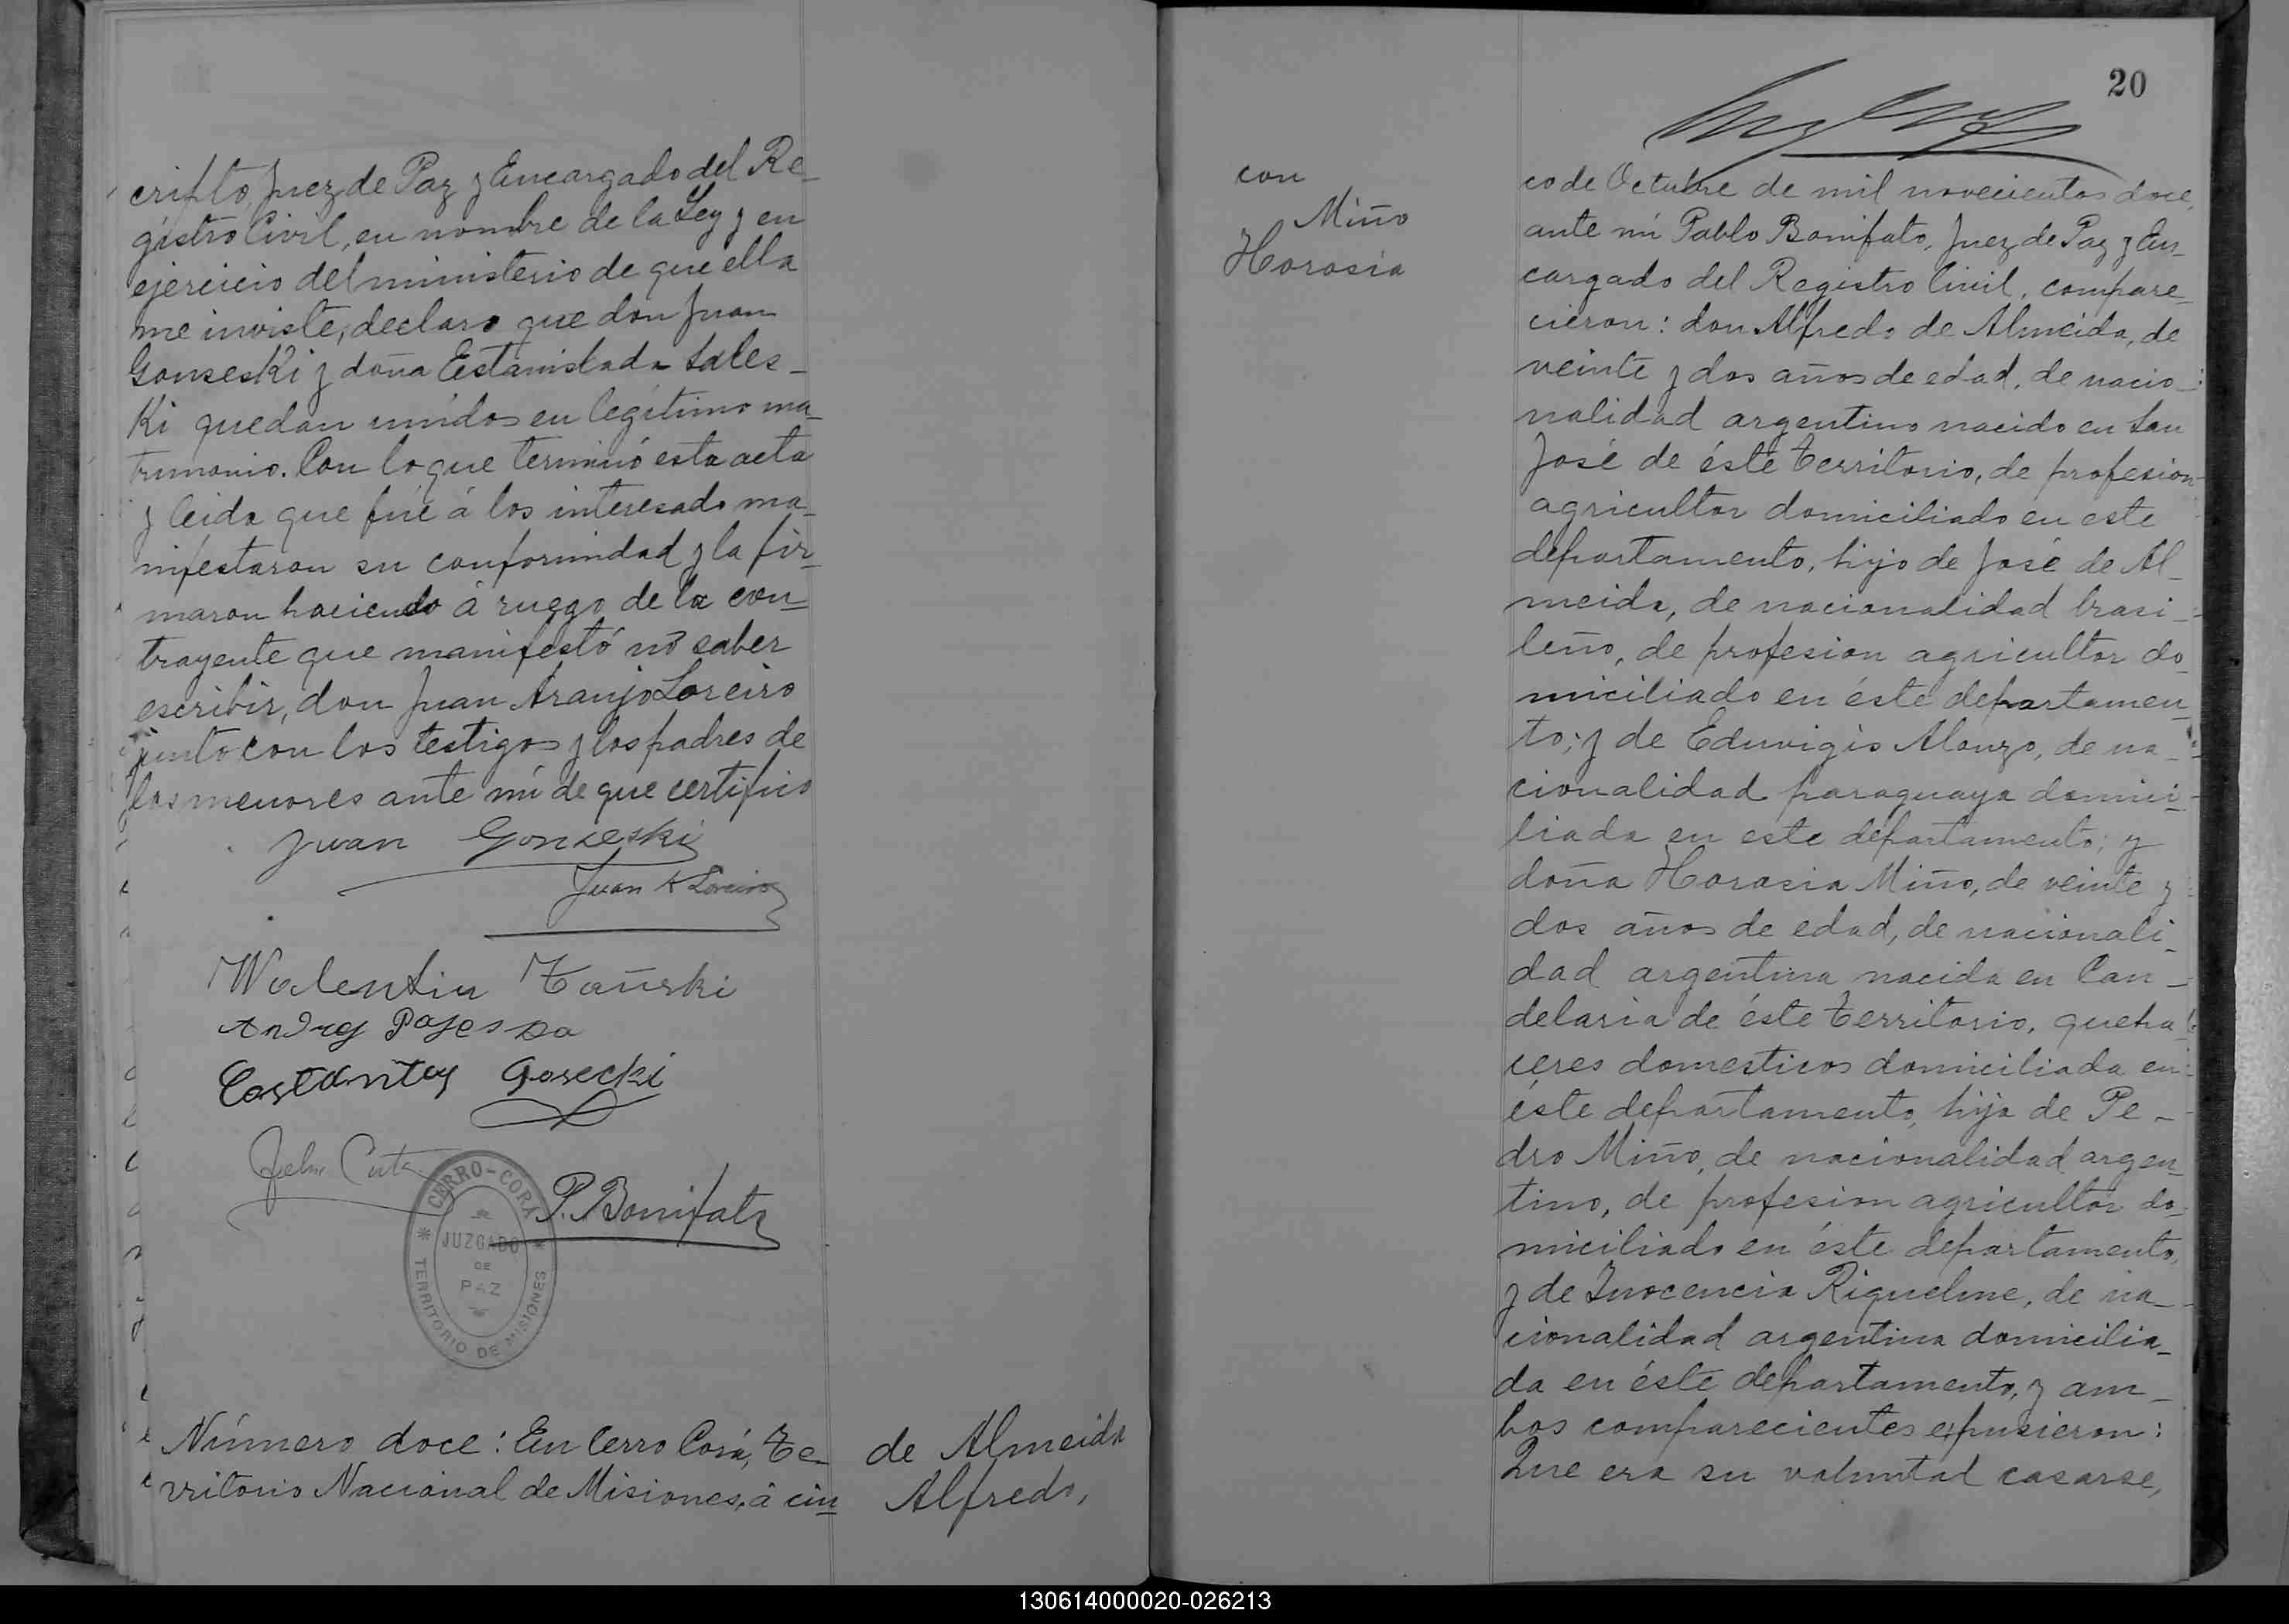 cripto, Juez de Paz y Encargado del Re-
gistro Civil, en nombre de la Ley y en
ejercicio del ministerio de que ella
me inviste, declaro que don Juan
Gonseski y doña Estanislada Sales-
ki quedan unidos en legítimo ma-
trimonio. Con lo que terminó esta acta
y leida que fué á los interesado ma-
nifestaron su conformidad y la fir-
maron haciendo á ruego de la con-
trayente que manifestó no saber
escribir, don Juan Araujo Loreiro
junto con los testigos y los padres de
los menores ante mí de que certifico
Juan Gonseski
Juan A Loreiro
Walentin Tañski
Andrej
Costantey Gosecki
CERRO-CORÁ
JUZGADO
DE
PAZ
TERRITORIO DE MISIONES
P. Bonifato
Número doce: En Cerro Corá, Te-
rritorio Nacional de Misiones, á cin-
de Almeida
Alfredo,
20
con
Miño
Horasia
co de Octubre de mil novecientos doce,
ante mí Pablo Bonifato, Juez de Paz y En-
cargado del Registro Civil, compare-
cieron: don Alfredo de Almeida, de
veinte y dos años de edad, de nacio-
nalidad argentino nacido en San
José de éste Territorio, de profesion
agricultor domiciliado en este
departamento, hijo de José de Al-
meida, de nacionalidad brasi-
leño, de profesion agricultor do-
miciliado en éste departamen-
to; y de Eduvigis Alonzo, de na-
cionalidad paraguaya domici-
liada en este departamento; y
doña Horasia Miño, de veinte y
dos años de edad, de nacionali-
dad argentina nacida en Can-
delaria de éste Territorio, queha-
ceres domesticos domiciliada en
éste departamento, hija de Pe-
dro Miño, de nacionalidad argen-
tino, de profesion agricultor do-
miciliado en éste departamento,
y de Inocencia Riquelme, de na-
cionalidad argentina domicilia-
da en éste departamento, y am-
bos comparecientes expusieron:
Que era su voluntad casarse,
130614000020-026213